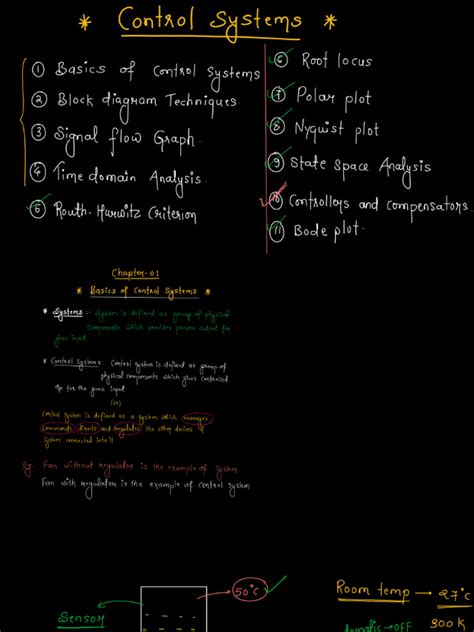 * Control Systems *
① Basics of Control Systems
② Block diagram Techniques
③ Signal flow Graph.
④ Time domain Analysis.
⑤ Routh-Hurwitz Criterion
⑥ Root locus
⑦ Polar plot
⑧ Nyquist plot
⑨ State Space Analysis
⑩ Controllers and compensators
⑪ Bode plot.
Chapter-01
* Basics of Control Systems *
* Systems :- System is defined as group of physical
Components which provides proper output for
given input
* Control System: Control system is defined as group of
physical components which gives controlled
o/p for the given input
(or)
Control system is defined as a system which manages,
commands, directs and regulates the other devices or
system connected into it
Eg. Fan without regulator is the example of system
Fan with regulator is the example of control system
50°C
Sensor
Room temp → 27°C
300K
→OFF